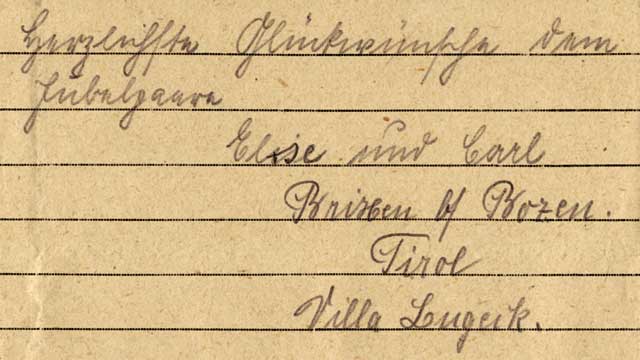 Herzlichste Glückwünsche dem
Jubelpaare
Elise und Carl
Brixen b/ Bozen.
Tirol
Villa Lugeck.